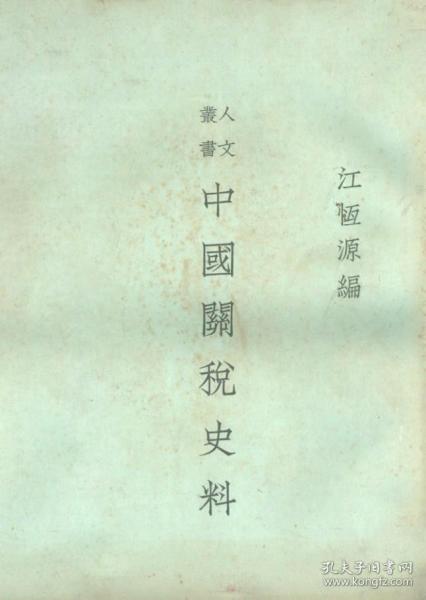 江恆源編
人文
叢書
中國關稅史料
孔夫子旧书网
www.kongfz.com